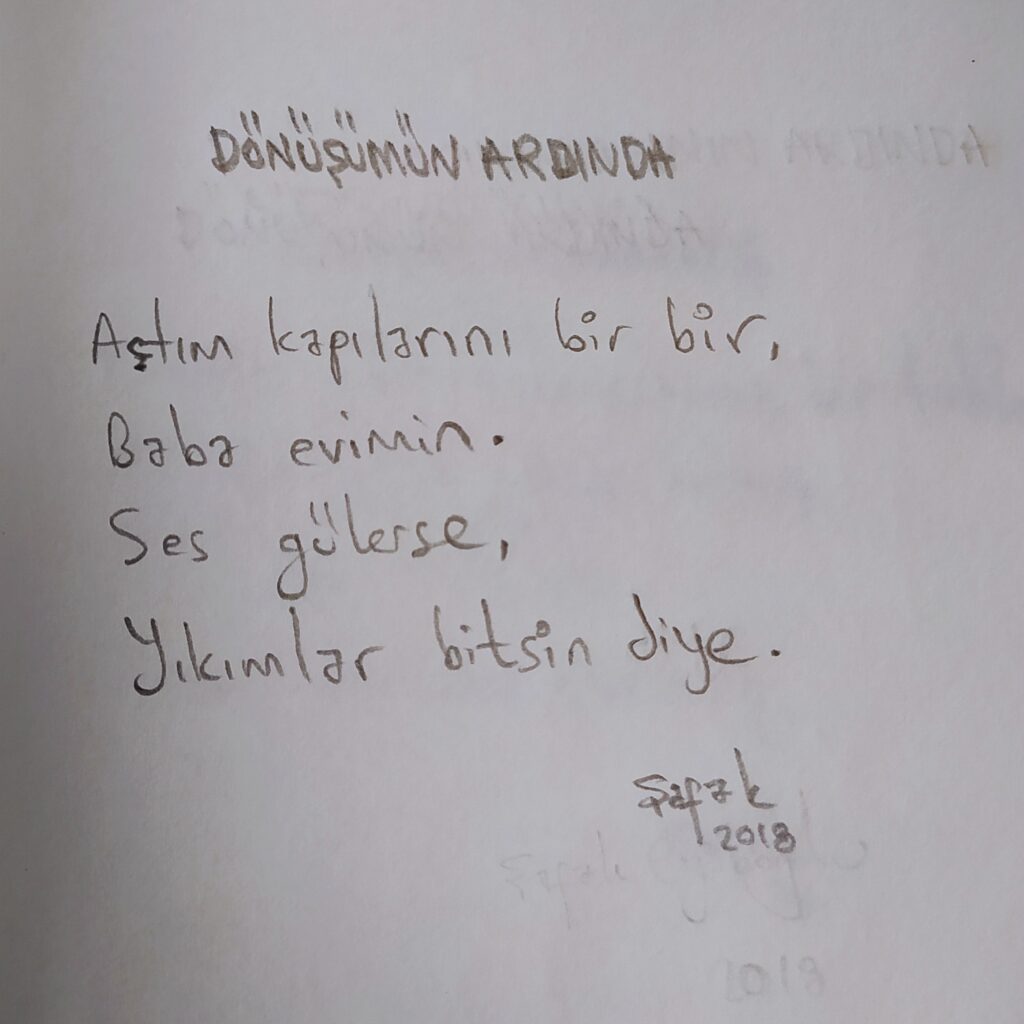 DÖNÜŞÜMÜN ARDINDA
Aştım kapılarını bir bir,
Baba evimin.
Ses gülerse,
Yıkımlar bitsin diye.
Şafak
2018